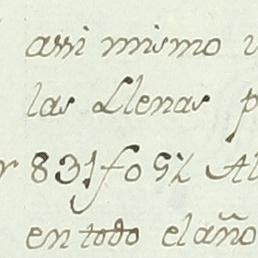 assi mismo
las Llenas p
831 fo 52 Al
en todo el año